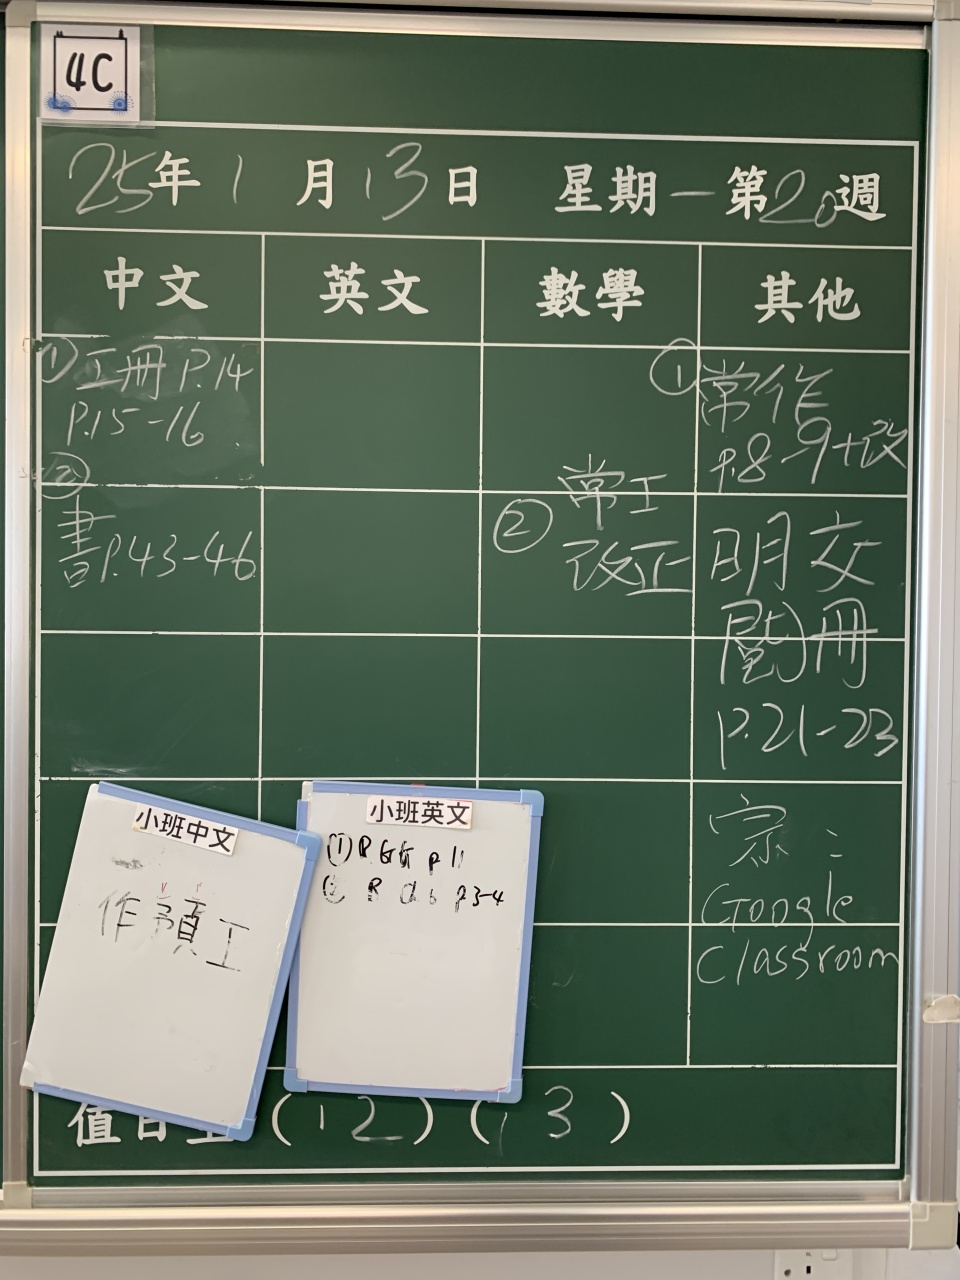 4C
25年1月13日 星期一第20週
中文 英文 數學 其他
① 工冊 P.14
P.15-16
②
書P.43-46
常工
② 改正
① 常作
p.8-9+改
明文
閱冊
P.21-23
宗:
Google
Classroom
小班中文
作預工
小班英文
① P. GG p 11
② p3-4
值日生 (12) (13)